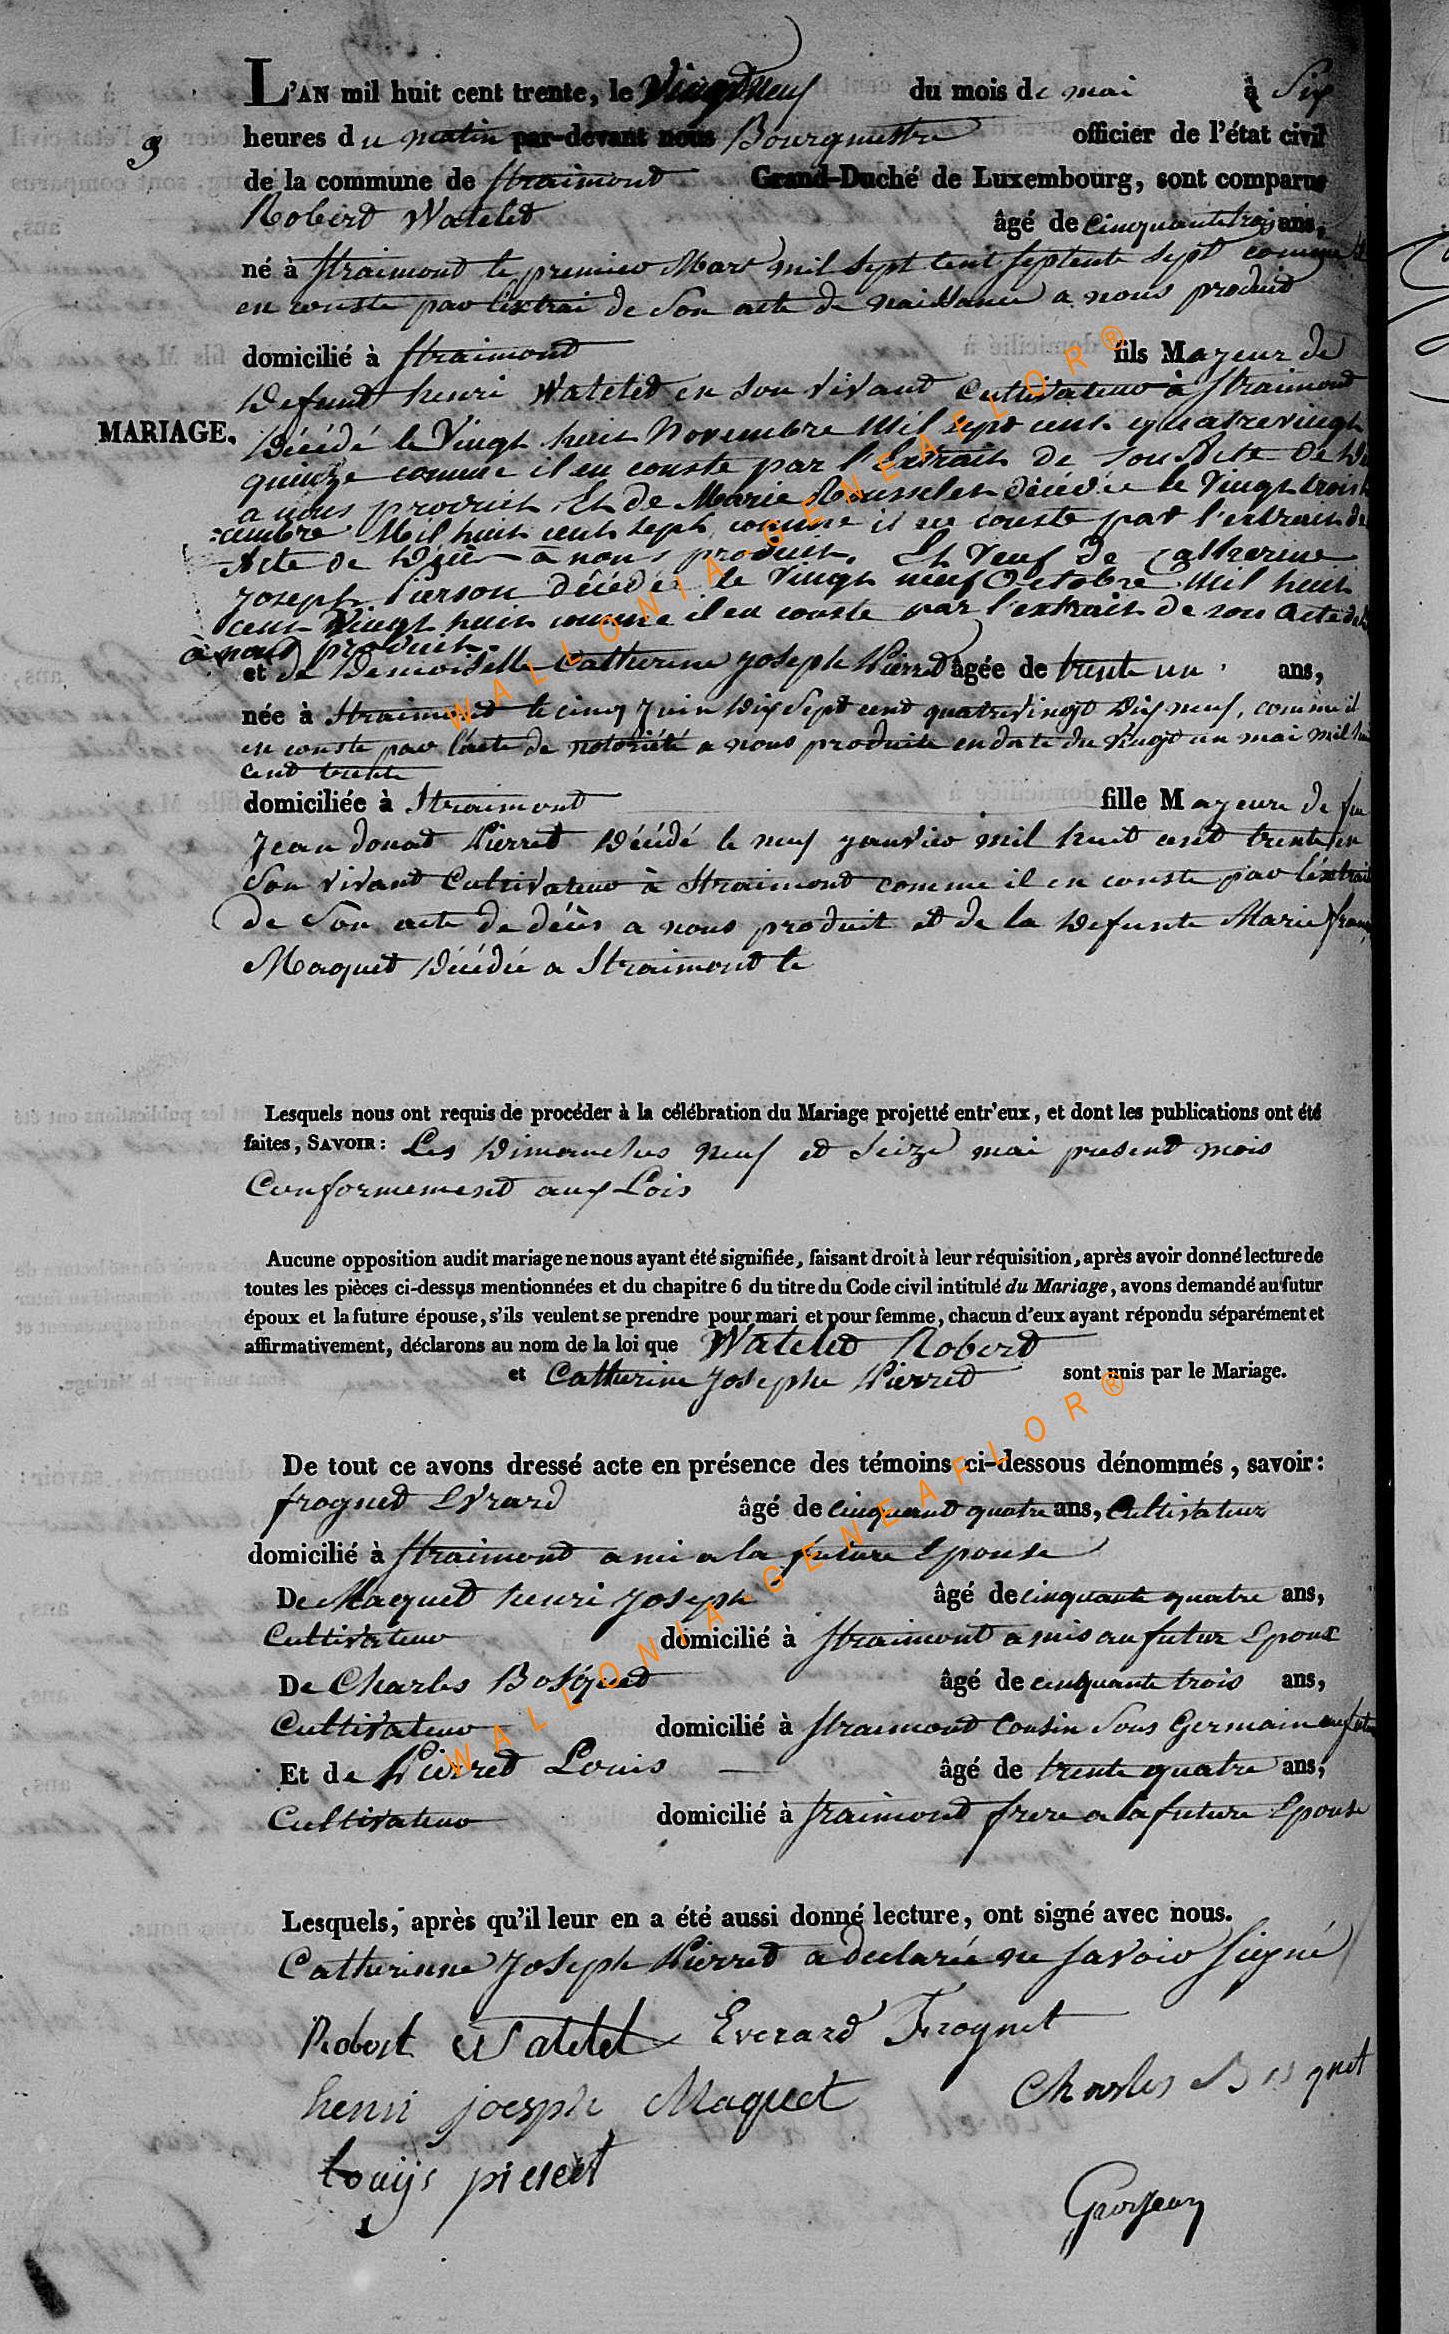 L'AN mil huit cent trente, le Vingt neuf du mois de mai à Six
9
heures du matin par-devant nous Bourgmestre officier de l'état civil
de la commune de Straimont Grand-Duché de Luxembourg, sont comparus
Robert Watelet âgé de cinquante trois ans,
né à Straimont le premier Mars mil Sept Cent Septente Sept comme il
en conste par l'extrai de Son acte de naissance a nous produit
domicilié à Straimont fils Mayeur de
Defunt henri Watelet en Son vivant Cultivateur à Straimont
MARIAGE.
Décédé le Vingt huit Novembre Mil sept cent quatrevingt
quinze comme il en conste par l'Extrait de Son Acte De
a nous produit, Et de Marie Rousselet décédée le Vingt trois
cembre Mil huit cent sept comme il en conste par l'extrait de
Acte de Décès à nous produit. Et Veuf de Catherine
Joseph Pierson Décédée le Vingt neuf Octobre Mil huit
cent Vingt huit comme il en conste par l'extrait de son Acte de
à nous produit.
et de Demoiselle Catherine Joseph Pierret âgée de trente un ans,
née à Straimont le cinq Juin Dix Sept cent quatrevingt Dix neuf, comme il
en conste par l'acte de notoriété a nous produite en date du Vingt un mai mil
cent trente
domiciliée à Straimont fille Mayeure de feu
Jean donat Pierret Décédé le neuf janvier mil huit cent trente en
Son vivant Cultivateur à Straimont comme il en conste par l'extrait
de Son acte de décès a nous produit et de la Defunte Marie
Maquet Décédée a Straimont le
Lesquels nous ont requis de procéder à la célébration du Mariage projetté entr'eux, et dont les publications ont été
faites, SAVOIR: Les Dimanches neuf et Seize mai present mois
Conformement aux Lois
Aucune opposition audit mariage ne nous ayant été signifiée, faisant droit à leur réquisition, après avoir donné lecture de
toutes les pièces ci-dessus mentionnées et du chapitre 6 du titre du Code civil intitulé du Mariage, avons demandé au futur
époux et la future épouse, s'ils veulent se prendre pour mari et pour femme, chacun d'eux ayant répondu séparément et
affirmativement, déclarons au nom de la loi que Watelet Robert
et Catherine Josephe Pierret sont unis par le Mariage.
De tout ce avons dressé acte en présence des témoins ci-dessous dénommés, savoir:
frognet Evrard âgé de cinquant quatre ans, Cultivateur
domicilié à Straimont ami a la future Epouse
De Maquet henri Joseph âgé de cinquante quatre ans,
Cultivateur domicilié à Straimont amis au futur Epoux
De Charles Bosquet âgé de cinquante trois ans,
Cultivateur domicilié à Straimont Cousin Sous Germain au futur
Et de Pierret Louis âgé de trente quatre ans,
Cultivateur domicilié à Straimont frere a la future Epouse
Lesquels, après qu'il leur en a été aussi donné lecture, ont signé avec nous.
Catherinne Joseph Pierret a declarée ne Savoir Signé
Robert Watelet Everard Frognet
henri joesph Maquet Charles Bosquet
Louijs pierret
Grosjean
WALLONIA-GENEAFLOR®
WALLONIA-GENEAFLOR®